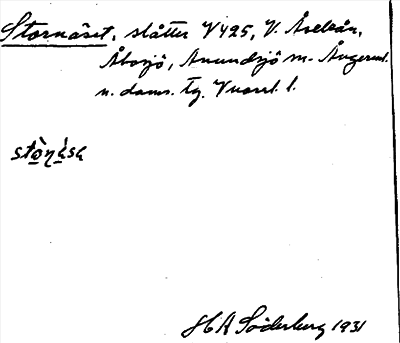 Stornäset, slåtter V425, V. Åseleån,
Åbosjö, Anundsjö sn. Ångerml.
n. doms. tg. Vuosel l.
stònésɛ
H A Söderberg 1931